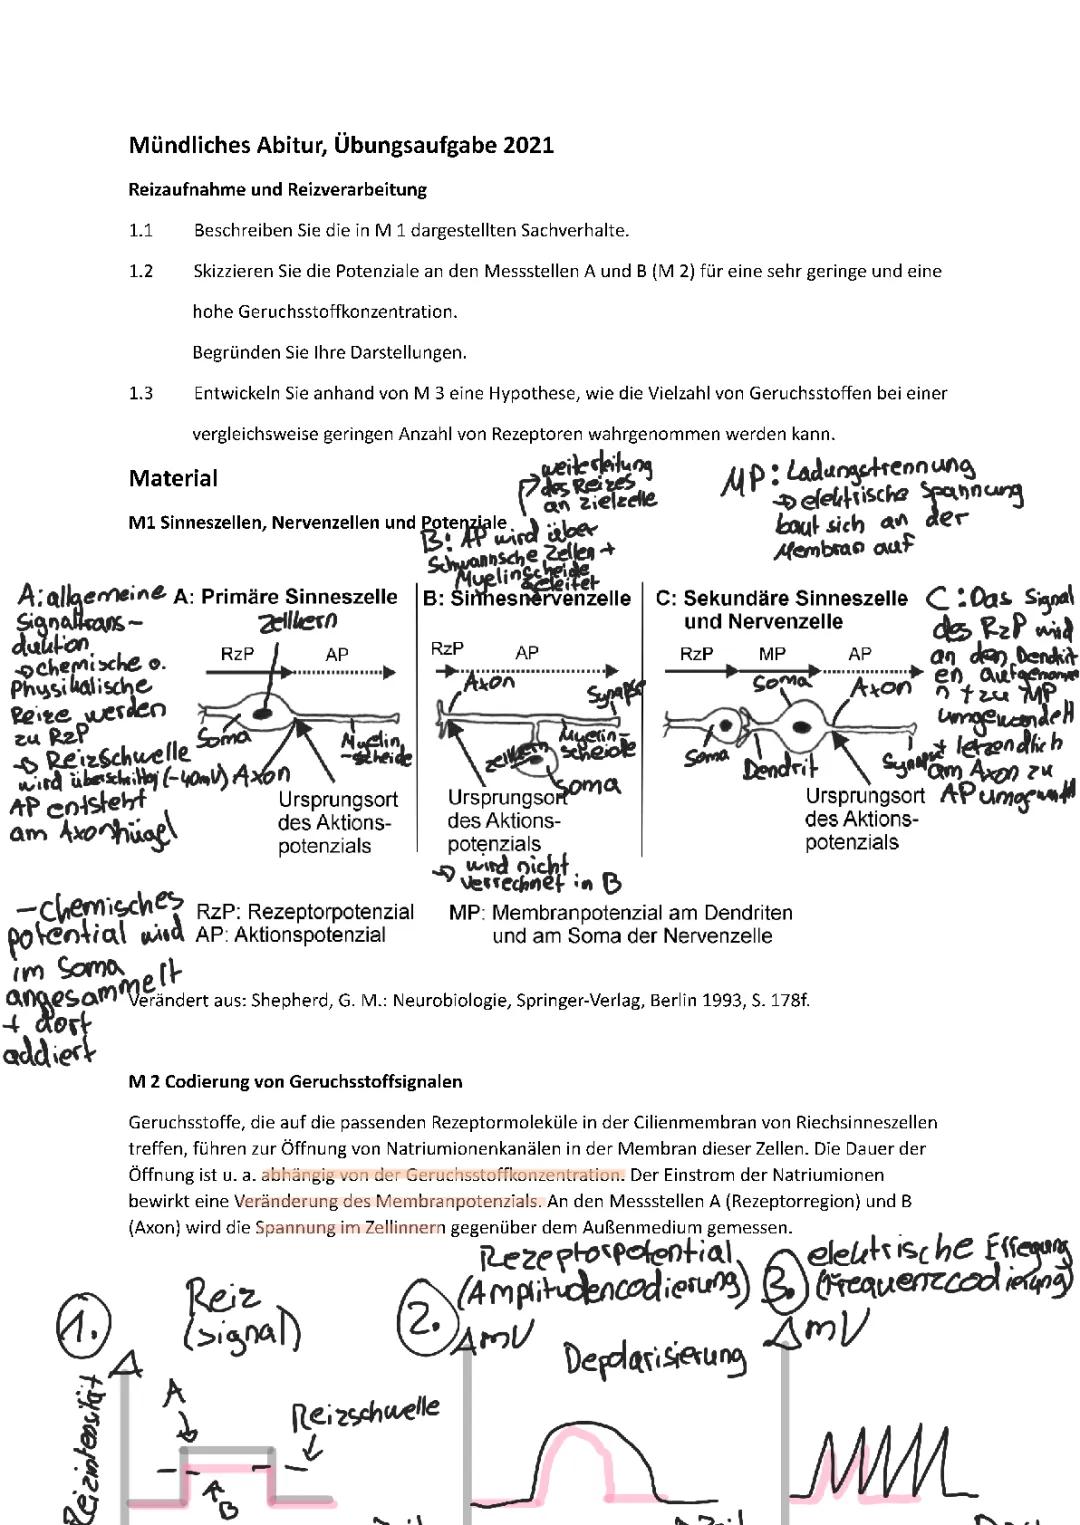 Mündliches Abitur, Übungsaufgabe 2021
Reizaufnahme und Reizverarbeitung
1.1 Beschreiben Sie die in M 1 dargestellten Sachverhalte.
1.2 Skizzieren Sie die Potenziale an den Messstellen A und B (M 2) für eine sehr geringe und eine
hohe Geruchsstoffkonzentration.
Begründen Sie Ihre Darstellungen.
1.3 Entwickeln Sie anhand von M 3 eine Hypothese, wie die Vielzahl von Geruchsstoffen bei einer
vergleichsweise geringen Anzahl von Rezeptoren wahrgenommen werden kann.
Material
weiterleitung
des Reizes
an Zielzelle
MP: Ladungstrennung
→ elektrische Spannung
baut sich an der
Membran auf
M1 Sinneszellen, Nervenzellen und Potenziale
B: AP wird über
Schwannsche Zellen +
Myelinscheide
geleitet
A: allgemeine
Signaltrans-
duktion
→ chemische o.
Physikalische
Reize werden
zu RzP
→ Reizschwelle
wird überschritten (-40mV)
AP entsteht
am Axonhügel
A: Primäre Sinneszelle
Zellkern
RzP AP
Soma
Myelin
-scheide
Axon
Ursprungsort
des Aktions-
potenzials
B: Sinnesnervenzelle
RzP AP
Axon
Synapse
Myelin-
scheide
Zellkern
Soma
Ursprungsort
des Aktions-
potenzials
→ wird nicht
verrechnet in B
C: Sekundäre Sinneszelle
und Nervenzelle
RzP MP AP
Soma
Axon
Soma
Dendrit
Synapse
Ursprungsort
des Aktions-
potenzials
C: Das Signal
des RzP wird
an den Dendrit
en aufgenomme
n + zu MP
umgewandelt
+ letzendlich
am Axon zu
AP umgewandelt
- chemisches
potential wird
im Soma
angesammelt
+ dort
addiert
RzP: Rezeptorpotenzial
AP: Aktionspotenzial
MP: Membranpotenzial am Dendriten
und am Soma der Nervenzelle
Verändert aus: Shepherd, G. M.: Neurobiologie, Springer-Verlag, Berlin 1993, S. 178f.
M 2 Codierung von Geruchsstoffsignalen
Geruchsstoffe, die auf die passenden Rezeptormoleküle in der Cilienmembran von Riechsinneszellen
treffen, führen zur Öffnung von Natriumionenkanälen in der Membran dieser Zellen. Die Dauer der
Öffnung ist u. a. abhängig von der Geruchsstoffkonzentration. Der Einstrom der Natriumionen
bewirkt eine Veränderung des Membranpotenzials. An den Messstellen A (Rezeptorregion) und B
(Axon) wird die Spannung im Zellinnern gegenüber dem Außenmedium gemessen.
1.
Reiz
(signal)
Reizintensität
A
Reizschwelle
B
2.
Rezeptorpotential
(Amplitudencodierung)
mV
Depolarisierung
3.
elektrische Erregung
(Frequenzcodierung)
mV